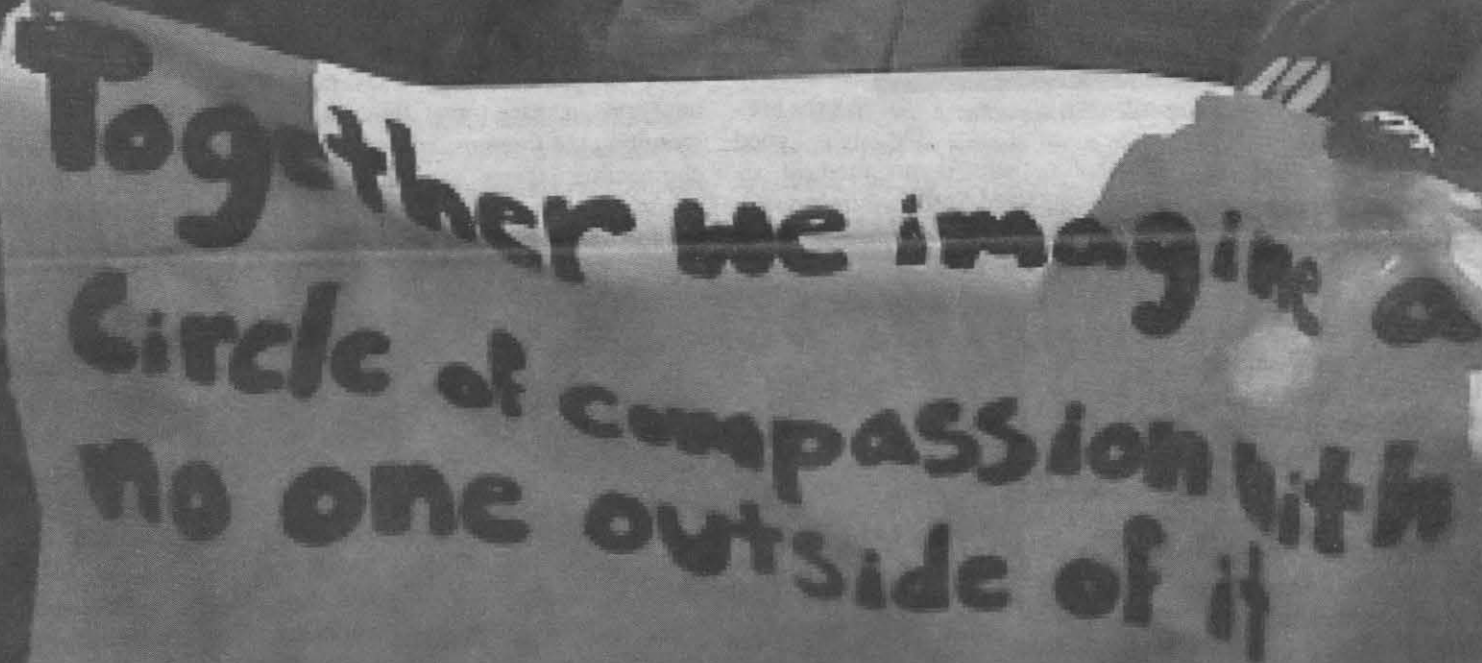 Together we imagine a
Circle of compassion with
no one outside of it